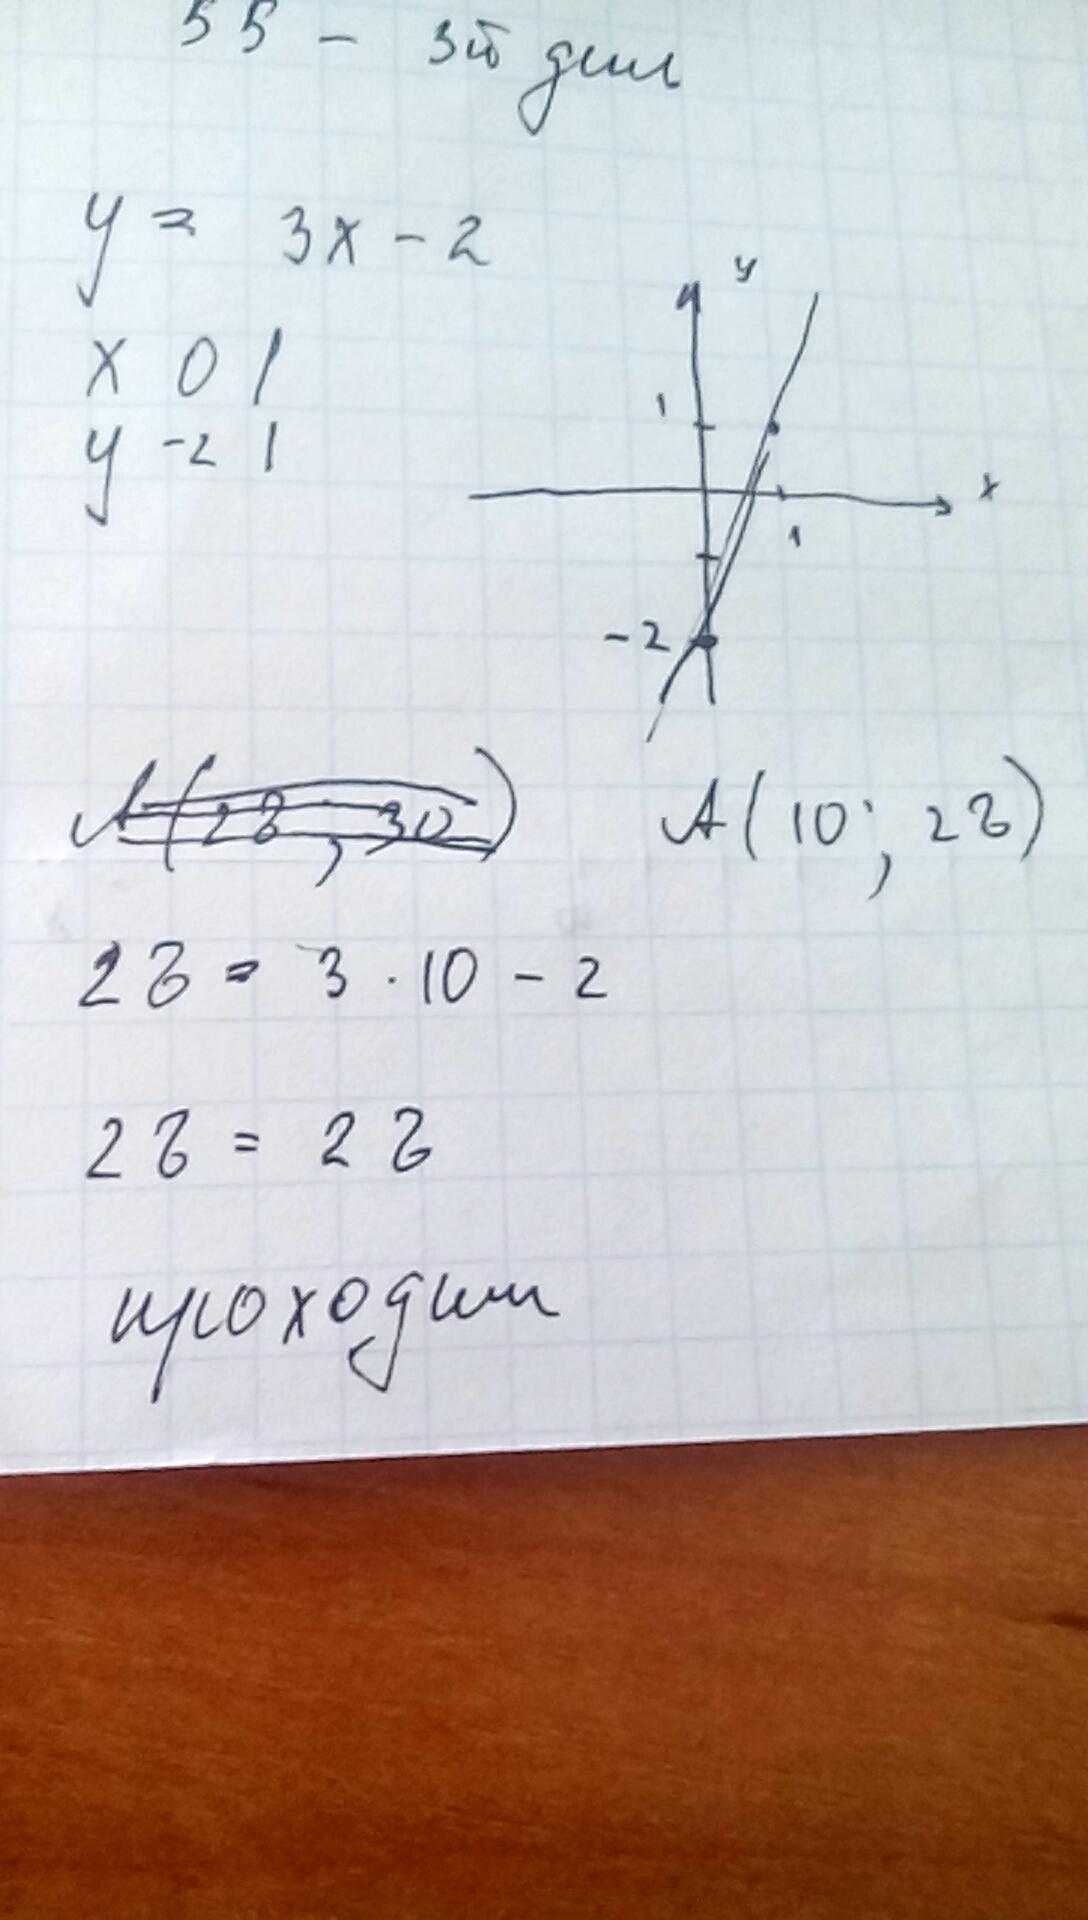 55 - 3й день
y = 3x - 2
x 0 1
y -2 1
y
1
x
1
-2
A(28; 30) A(10; 28)
28 = 3 · 10 - 2
28 = 28
проходит